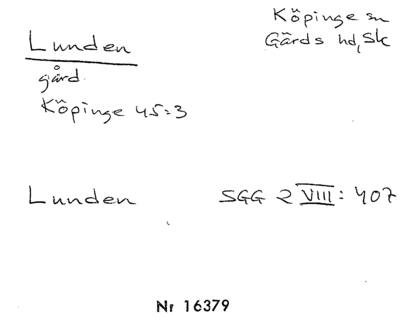 Köpinge sn
Lunden Gärds hd, Sk
gård.
Köpinge 45:3
Lunden SGG 2 VIII: 407
Nr 16379